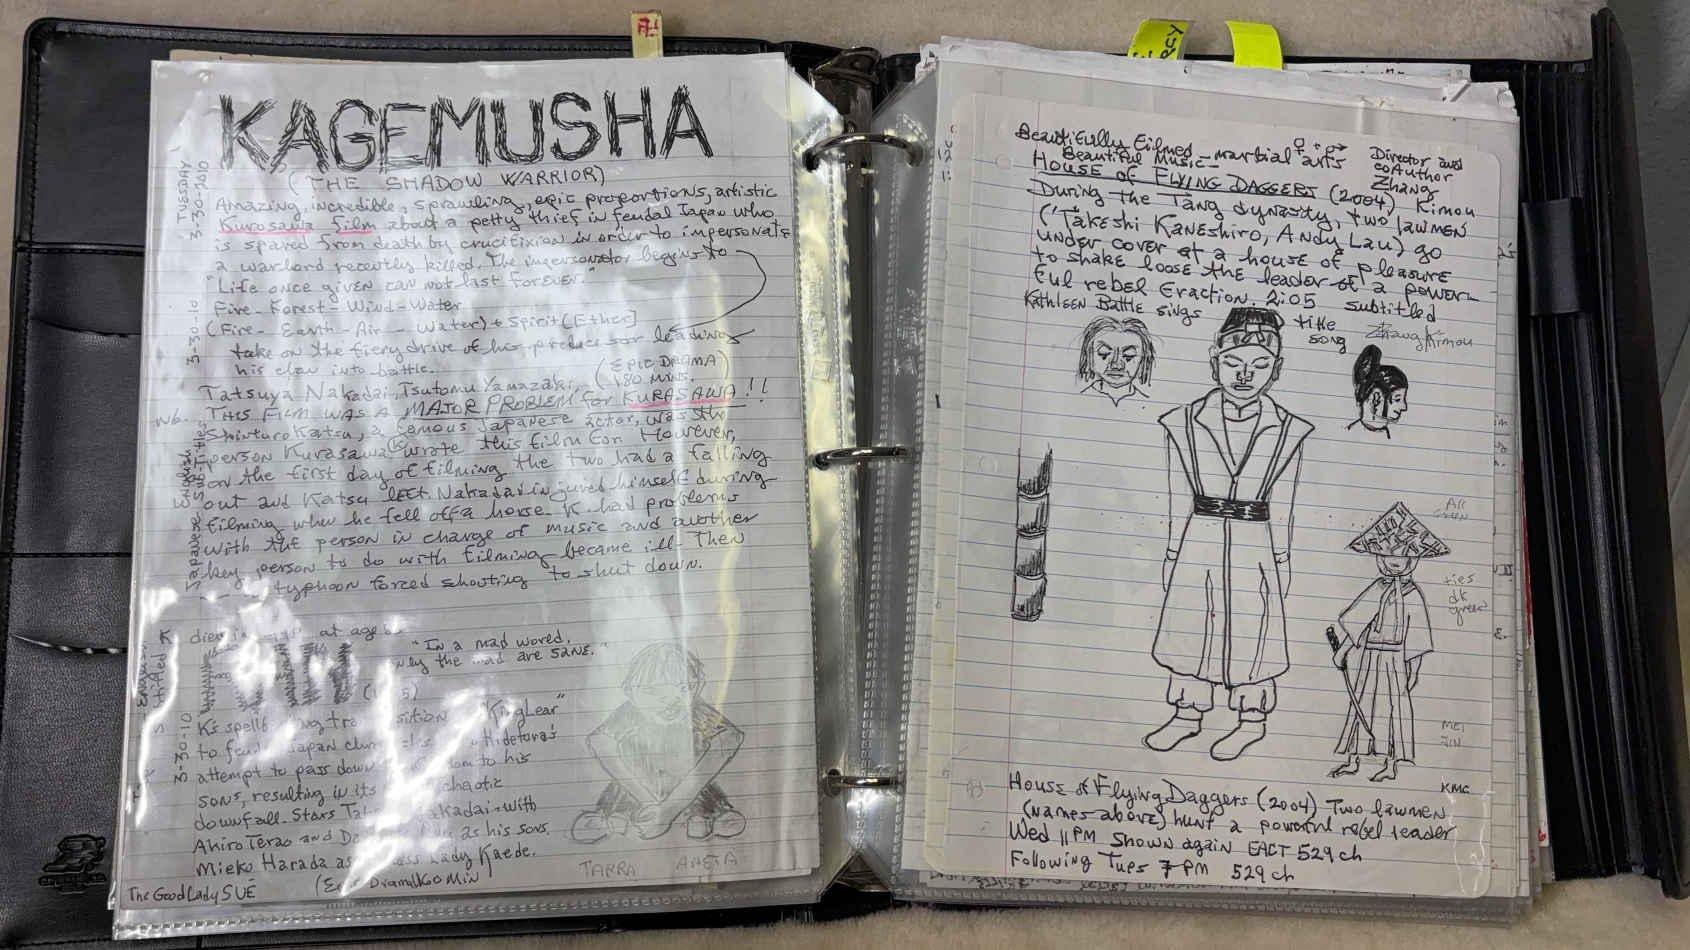 KAGEMUSHA
(THE SHADOW WARRIOR)
TUESDAY
3-30-2010
Amazing, incredible, sprawling, epic proportions, artistic
Kurosawa film about a petty thief in feudal Japan who
is spared from death by crucifixion in order to impersonate
a warlord recently killed. The impersonator begins to
"Life once given can not last forever."
Fire-Forest-Wind-Water
3-30-10
(Fire-Earth-Air-Water) + Spirit [Ether]
take on the fiery drive of his predecessor leading
his clan into battle.
(EPIC DRAMA)
180 MINS.
Tatsuya Nakadai, Tsutomu Yamazaki,
THIS FILM WAS A MAJOR PROBLEM for KURASAWA!!
Shinturo Katsu, a famous Japanese actor, was the
person Kurasawa (K) wrote this film for. However,
on the first day of filming the two had a falling
out and Katsu left. Nakadai injured himself during
filming when he fell off a horse. K. had problems
with the person in charge of music and another
key person to do with filming became ill. Then
a typhoon forced shooting to shut down.
Japanese English
Subtitles
K died in at age
"In a mad world,
only the mad are sane."
3-30-10
K's spellbinding transposition "King Lear"
to feudal Japan Hidetora's
attempt to pass down to his
sons, resulting in its chaotic
downfall. Stars Nakadai with
Akiro Terao and as his sons.
Mieko Harada as Lady Kaede.
(Epic Drama 160 MIN)
The Good Lady SUE
TARRA
Beautifully filmed - martial arts
Beautiful Music-
Director and
coAuthor
Zhang
HOUSE of FLYING DAGGERS (2004) Kimou
During the Tang dynasty, two lawmen
(Takeshi Kaneshiro, Andy Lau) go
under cover at a house of pleasure
to shake loose the leader of a power-
ful rebel fraction. 2:05 subtitled
Kathleen Battle sings
title
song
Zhang Kimou
All
Green
ties
dk
green
MEI
JIN
KMC
House of Flying Daggers (2004) Two lawmen
(names above) hunt a powerful rebel leader
Wed 11 PM Shown again EACT 529 ch
Following Tues 7 PM 529 ch